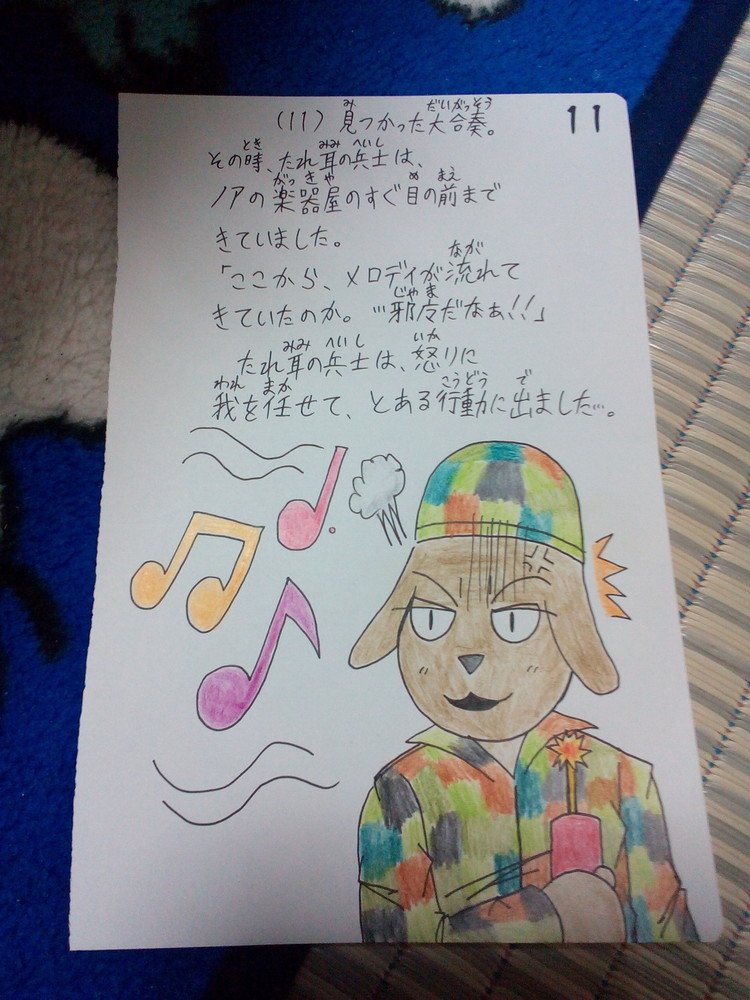 (11) 見つかった大合奏。 11
その時、たれ耳の兵士は、
ノアの楽器屋のすぐ目の前まで
きていました。
「ここから、メロディが流れて
きていたのか。…邪魔だなぁ!!」
たれ耳の兵士は、怒りに
我を任せて、とある行動に出ました…。